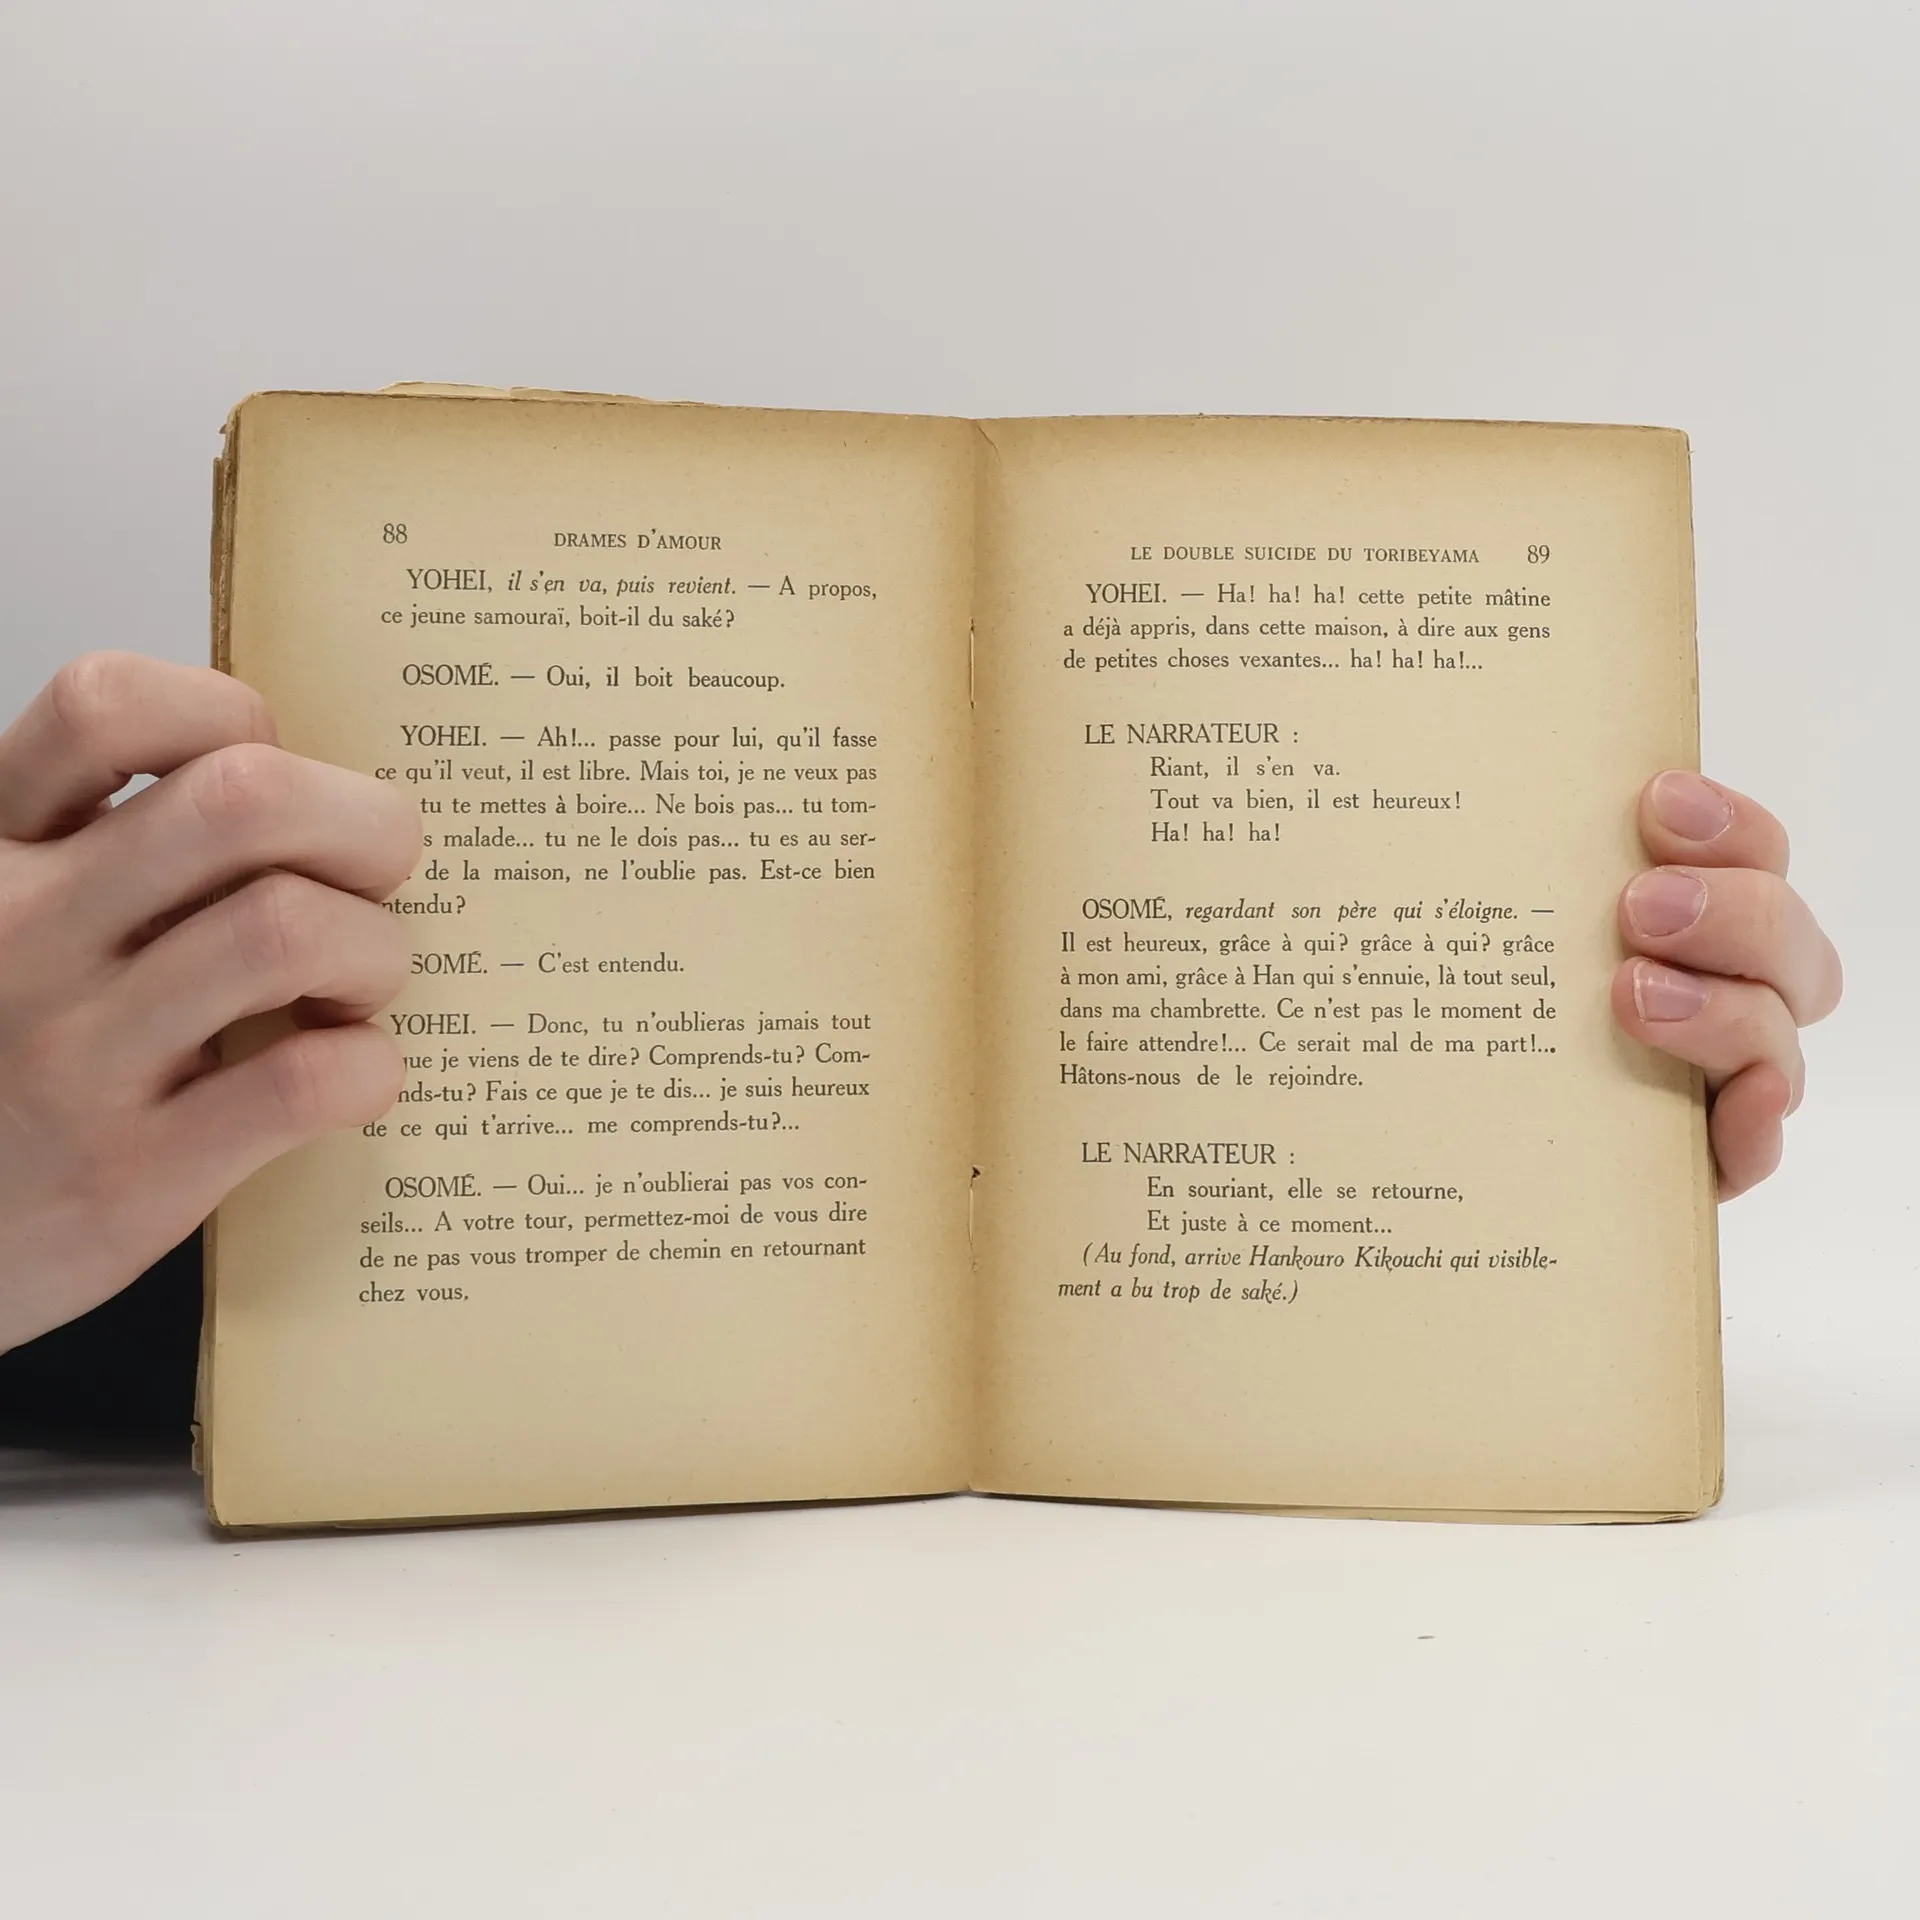 88 DRAMES D'AMOUR
YOHEI, il s'en va, puis revient. — A propos,
ce jeune samouraï, boit-il du saké?
OSOMÉ. — Oui, il boit beaucoup.
YOHEI. — Ah!... passe pour lui, qu'il fasse
ce qu'il veut, il est libre. Mais toi, je ne veux pas
tu te mettes à boire... Ne bois pas... tu tom-
malade... tu ne le dois pas... tu es au ser-
de la maison, ne l'oublie pas. Est-ce bien
ntendu?
SOMÉ. — C'est entendu.
YOHEI. — Donc, tu n'oublieras jamais tout
que je viens de te dire? Comprends-tu? Com-
nds-tu? Fais ce que je te dis... je suis heureux
de ce qui t'arrive... me comprends-tu?...
OSOMÉ. — Oui... je n'oublierai pas vos con-
seils... A votre tour, permettez-moi de vous dire
de ne pas vous tromper de chemin en retournant
chez vous.
LE DOUBLE SUICIDE DU TORIBEYAMA 89
YOHEI. — Ha! ha! ha! cette petite mâtine
a déjà appris, dans cette maison, à dire aux gens
de petites choses vexantes... ha! ha! ha!...
LE NARRATEUR :
Riant, il s'en va.
Tout va bien, il est heureux!
Ha! ha! ha!
OSOMÉ, regardant son père qui s'éloigne. —
Il est heureux, grâce à qui? grâce à qui? grâce
à mon ami, grâce à Han qui s'ennuie, là tout seul,
dans ma chambrette. Ce n'est pas le moment de
le faire attendre!... Ce serait mal de ma part!...
Hâtons-nous de le rejoindre.
LE NARRATEUR :
En souriant, elle se retourne,
Et juste à ce moment...
(Au fond, arrive Hankouro Kikouchi qui visible-
ment a bu trop de saké.)